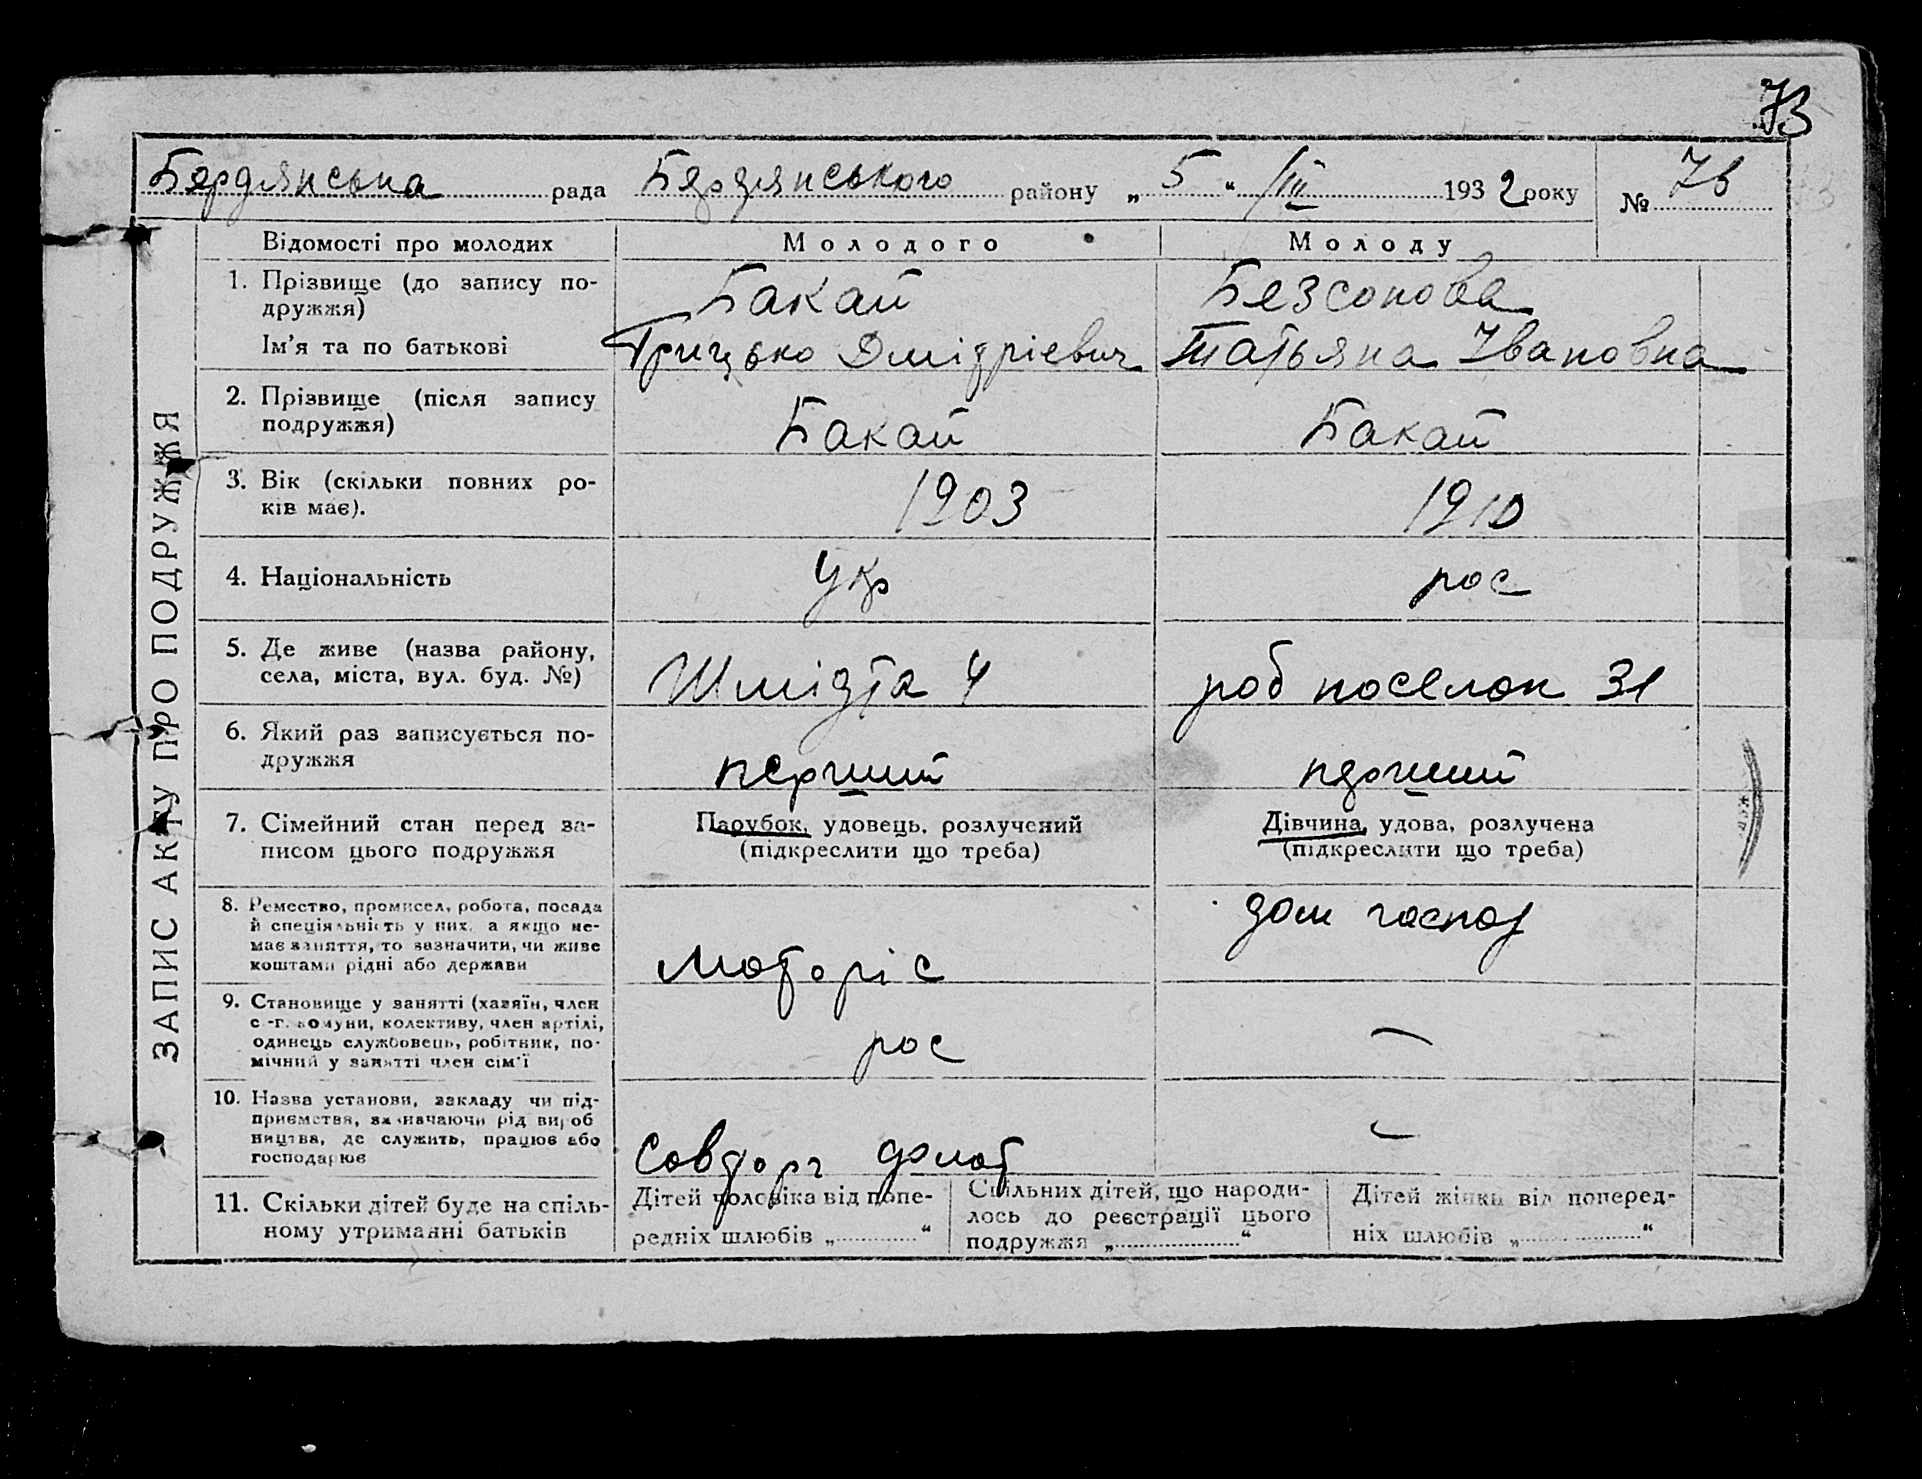 73
Бердянська рада Бердянського району „ 5 “ /III 1932 року № 76
ЗАПИС АКТУ ПРО ПОДРУЖЖЯ
Відомості про молодих Молодого Молоду
1. Прізвище (до запису по- Бакай Безсонова
дружжя)
Ім'я та по батькові Грицько Дмідрієвич Татьяна Івановна
2. Прізвище (після запису Бакай Бакай
подружжя)
3. Вік (скільки повних ро- 1903 1910
ків має).
4. Національність Укр рос
5. Де живе (назва району, Шмідта 4 роб поселок 31
села, міста, вул. буд. №)
6. Який раз записується по- перший перший
дружжя
7. Сімейний стан перед за- Парубок, удовець, розлучений Дівчина, удова, розлучена
писом цього подружжя (підкреслити що треба) (підкреслити що треба)
8. Ремество, промисел, робота, посада дом господ
й спеціяльність у них, а якщо не-
має заняття, то зазначити, чи живе
коштами рідні або держави моторіс
9. Становище у занятті (хазяїн, член
с.-г. комуни, колективу, член артілі,
одинець службовець, робітник, по- рос —
мічний у занятті член сім'ї
10. Назва установи, закладу чи під-
приємства, зазначаючи рід вироб
ництва, де служить, працює або —
господарює Совторг
11. Скільки дітей буде на спіль- Дітей чоловіка від попе- Спільних дітей, що народи- Дітей жінки від поперед-
ному утриманні батьків редніх шлюбів „ “ лось до реєстрації цього ніх шлюбів „ “
подружжя „ “